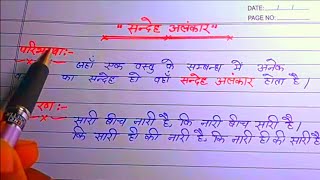 DATE: / /
PAGE NO.:
"सन्देह अलंकार"
परिभाषा:-
जहाँ एक वस्तु के सम्बन्ध में अनेक
का सन्देह हो वहाँ सन्देह अलंकार होता है।
रण:-
सारी बीच नारी है, कि नारी बीच सारी है।
कि सारी ही की नारी है, कि नारी ही की सारी है